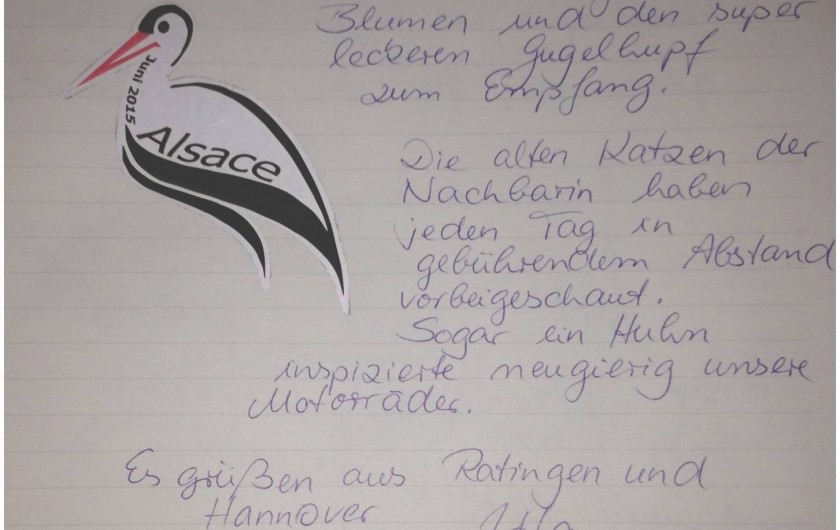 Juni 2015
Alsace
Blumen und den super
leckeren Gugelhupf
zum Empfang.
Die alten Katzen der
Nachbarin haben
jeden Tag in
gebührendem Abstand
vorbeigeschaut.
Sogar ein Huhn
inspizierte neugierig unsere
Motorräder.
Es grüßen aus Ratingen und
Hannover